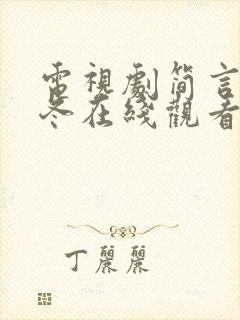 電視劇簡言的
冬在綫觀看
丁麗麗